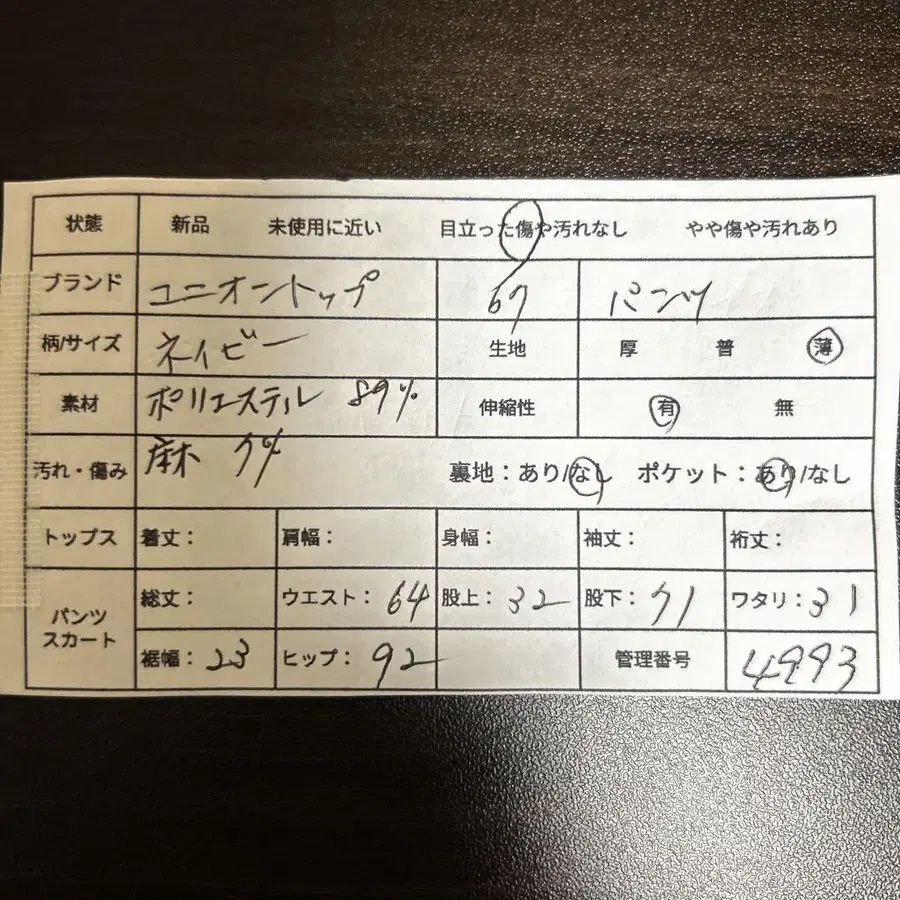 状態 新品 未使用に近い 目立った傷や汚れなし やや傷や汚れあり
ブランド ユニオントップ 67 パンツ
柄/サイズ ネイビー 生地 厚 普 薄
素材 ポリエステル 89% 伸縮性 有 無
汚れ・傷み 麻 7% 裏地：あり/なし ポケット：あり/なし
トップス 着丈： 肩幅： 身幅： 袖丈： 裄丈：
パンツ スカート 総丈： ウエスト：64 股上：32 股下：71 ワタリ：31
裾幅：23 ヒップ：92 管理番号 4993